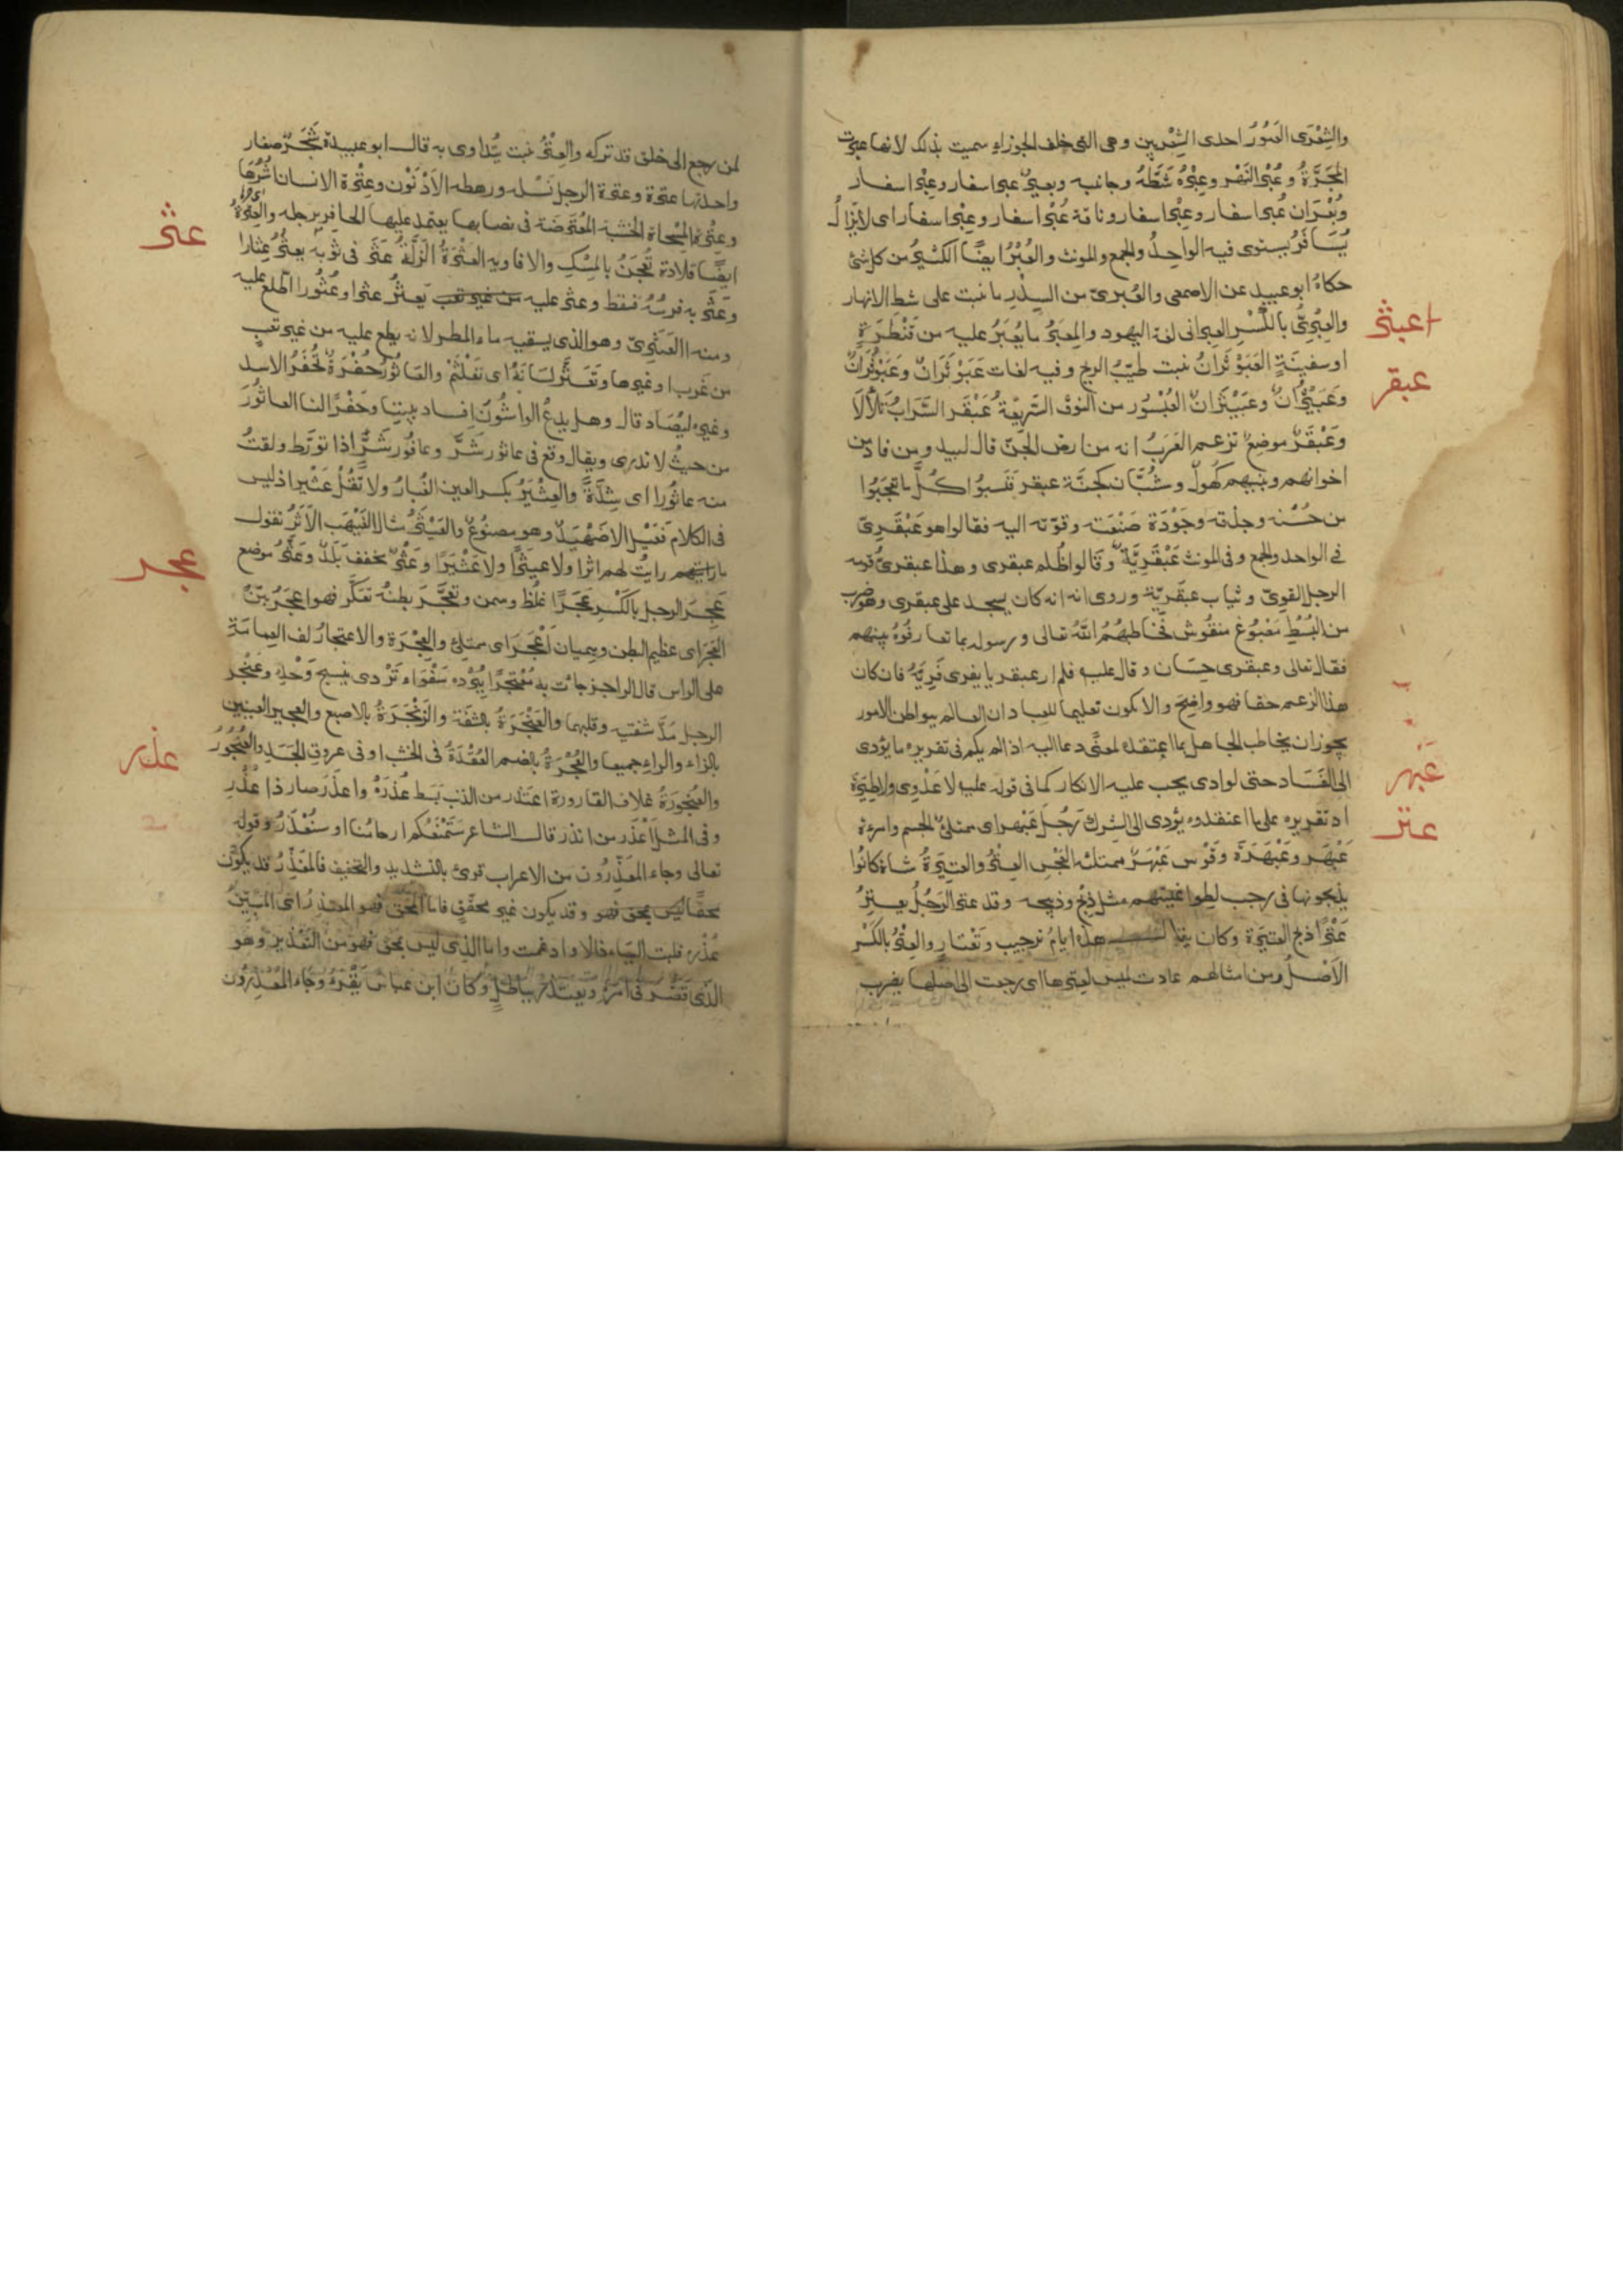 والشِعْرَى العَبُورُ احدى الشِعْرَيين وهى التى خلف الجوزاء سميت بذلك لانها عبرت
المَجَرَّةُ وعُبْرُ النَهْر وعِبْرُهُ شَطَّهُ وجانبه وبعيرٌ عبر اسفار وعِبْر اسفار
وبُعْرَان عُبر اسفار وعِبْر اسفار وناقة عُبْر اسفار وعِبْر اسفار اى لا يَزالُ
يُسَافَرُ يستوى فيه الواحِدُ والجمع والمونث والعُبْرُ ايضًا الكثيرُ من كل شئ
حكاهُ ابو عبيد عن الاصمعى والعُبرىّ من السِدْرِ ما نبت على شط الانهار
والعِبْرِىّ بالكَسْرِ العبرانى لغة اليهود والمِعبَرُ ما يُعْبَرُ عليه من قَنْطَرَةٍ
اعبثر
او سفينَةٍ العَبَوْثَرانُ نبت طيّبُ الريح وفيه لغات عَبَوْثَرَانٌ وعَبَوْثُرَانٌ
وعَبَيْثُرانٌ وعَبَيْثَرَانٌ العُبْسُور من النوق السَريْعَةُ عَبْقَر السَّرَابُ تلألأ
عبقر
وعَبْقَرٌ موضِع تزعم العَرَبُ انه من ارض الجنّ قال لبيد ومن فاد من
اخوانهم وبنيهم كهُولٌ وشُبَّان كجنَّة عبقر فَنَسبُوا كُلَّ ما تعجَبُوا
من حُسْنه وجدّته وجَوْدَة صَنْعَته وقوّته اليه فقالوا هو عَبْقَرِىّ
فى الواحد والجمع وفى المونث عَبْقَرِيَّةٌ وقالوا ظُلم عبقرى وهذا عبقرىُّ قومه
الرجل القوىّ وثياب عبقَريّة وروى انه كان يسجد على عبقرى وهو ضرب
من البُسُطِ مَصْبُوغ منقُوش فخاطبهُمُ اللّٰهُ تعالى ورسوله بما تعارفُوهُ بينهم
فقال تعالى وعبقرى حِسَان وقال عليه فلم ار عبقريا يفرى فَرِيَّهُ فان كان
هذا الزعم حقا فهو واضِح والا يكون تعليما للعباد ان العالم ببواطن الامور
يجوز ان يخاطب الجاهل بما اعتقده لمعنًى دعا اليه اذا لم يكن فى تقريره ما يؤدى
الى الفسَاد حتى لو ادى يجب عليه الانكار كما فى قوله عليه لا عَدْوى ولا طِيَرَة
عبهر
اذ تقريره على ما اعتقدوه يؤدى الى الشرك رَجُلٌ عَبْهر اى ممتلئُ الجسم وامرءة
عَبْهَر وعَبْهَرَة وقَوْس عَبْهَرٌ ممتلئة العَجْسِ العِتْرُ والعتِيرَةُ شاة كانُوا
عتر
يذبحُونها فى رجب مثل ذِبْح وذبيحه وقد عتر الرَجُلُ يعتِرُ
عَتْرًا ذبح العتيرة وكان يقال هذه ايامُ ترجيب وتَعْتار والعِتْرُ بالكَسْر
الاَصْلُ ومن امثالهم عادت لميس لعِترها اى رجعت الى اصلها يضرب
لمن رجع الى خلق قد تركه والعِتْرُ نبت يُتداوى به قال ابو عبيدة شَجَرٌ صغار
واحدتها عترة وعترة الرجل نَسْله ورهطه الاَدْنَوْن وعِتْرة الانسان اُشُرُهَا
وعِتْرة المِسْحاة الخشبة المُعْترَضَة فى نصابها يعتمد عليها الحافر برجله والعِتْرَةُ
ايضًا قلادة تُعْجَنُ بالمِسْكِ والافاويه العَثْرَةُ الزَلَّةُ عَثَر فى ثوبه يعثُرُ عِثارا
عثر
وعَثَر به فرسُهُ فسَقط وعثر عليه يَعْثُرُ عثرا وعُثُورا اطّلع عليه
ومنه العَثَرِىّ وهو الذى يسقيه ماء المطر لانه يطلع عليه من غير تعبٍ
من غَرب او غيرها وتَعَثَّر لسَانَهُ اى تَعَلْثَمْ والعَاثُورُ حُفْرَةٌ تُحْفَرُ للاسد
وغيره ليُصَاد قال وهل يدعُ الواشُون اِفساد بيننا وحَفْرًا لنا العاثُورَ
من حيثُ لا ندرى ويقال وقع فى عاثور شَرٍّ وعافُور شَرٍّ اذا تورَّط ولقيتُ
منه عاثُورا اى شِدَّةً والعِثْيَرُ بكسر العين الغُبارُ ولا تَقُلْ عَثْير اذ ليس
فى الكلام فَعْيَل الا ضَهْيَدٌ وهو مصنُوعٌ والعَيْثَرُ مثال الغَيْهَبِ الاَثَرُ تقول
ما رايت لهم اثرا ولا عيثرًا ولا عَثْيَرًا وعَثْرٌ مخفف بَلَدٌ وعَثَّرُ موضع
عجر
عَجِرَ الرجل بالكَسْرِ عَجَرًا غلُظ وسمن وتعجَّرَ بطنُهُ تعَكَّر فهو اعجَرُ بيّنُ
العَجَرِ اى عظيم البطن وهميان اَعْجَر اى ممتلئ والعِجْرَة والاعتجارُ لف العمامة
على الراس قال الراجز جائت به مُعْتجرًا ببُرْده سَفْوَاء تَرْدى بنسيج وَحْدِه وعَنْجَر
الرجل مَدَّ شفتيه وقلبهما والعَنْجَرَةُ بالشفَة والزَنْجَرَةُ بالاصبع والعجير العِنّين
بالزاء والراء جميعا والعُجْرَةُ بالضم العُقْدَةُ فى الخشب او فى عروق الجَسَدِ والعُنْجُورُ
عذر
والعُنْجُورَةُ غلاف القارورة اعتَذر من الذنب بَسَط عُذرَهُ واعذَر صار ذا عُذْر
وفى المثل اَعْذَر من انذر قال الشاعر سَتَمْنَعُكم ارحامُنا او سَنُعْذَرُ وقوله
تعالى وجاء المعَذِّرُون من الاعراب قرئ بالتشديد والتخفيف فالمعَذِّرُ قد يكون
محقًّا وقد يكون غير محقٍّ فاما المُحِق فهو المعتذِرُ
عُذْره قلبت التاء ذالا وادغمت واما الذى ليس بمحق فهو من التعْذير وهو
الذى قَصَّر فى امره ويعتذر بباطلٍ وكان ابن عباس يَقْرءُ وجاء المُعْذِرُون